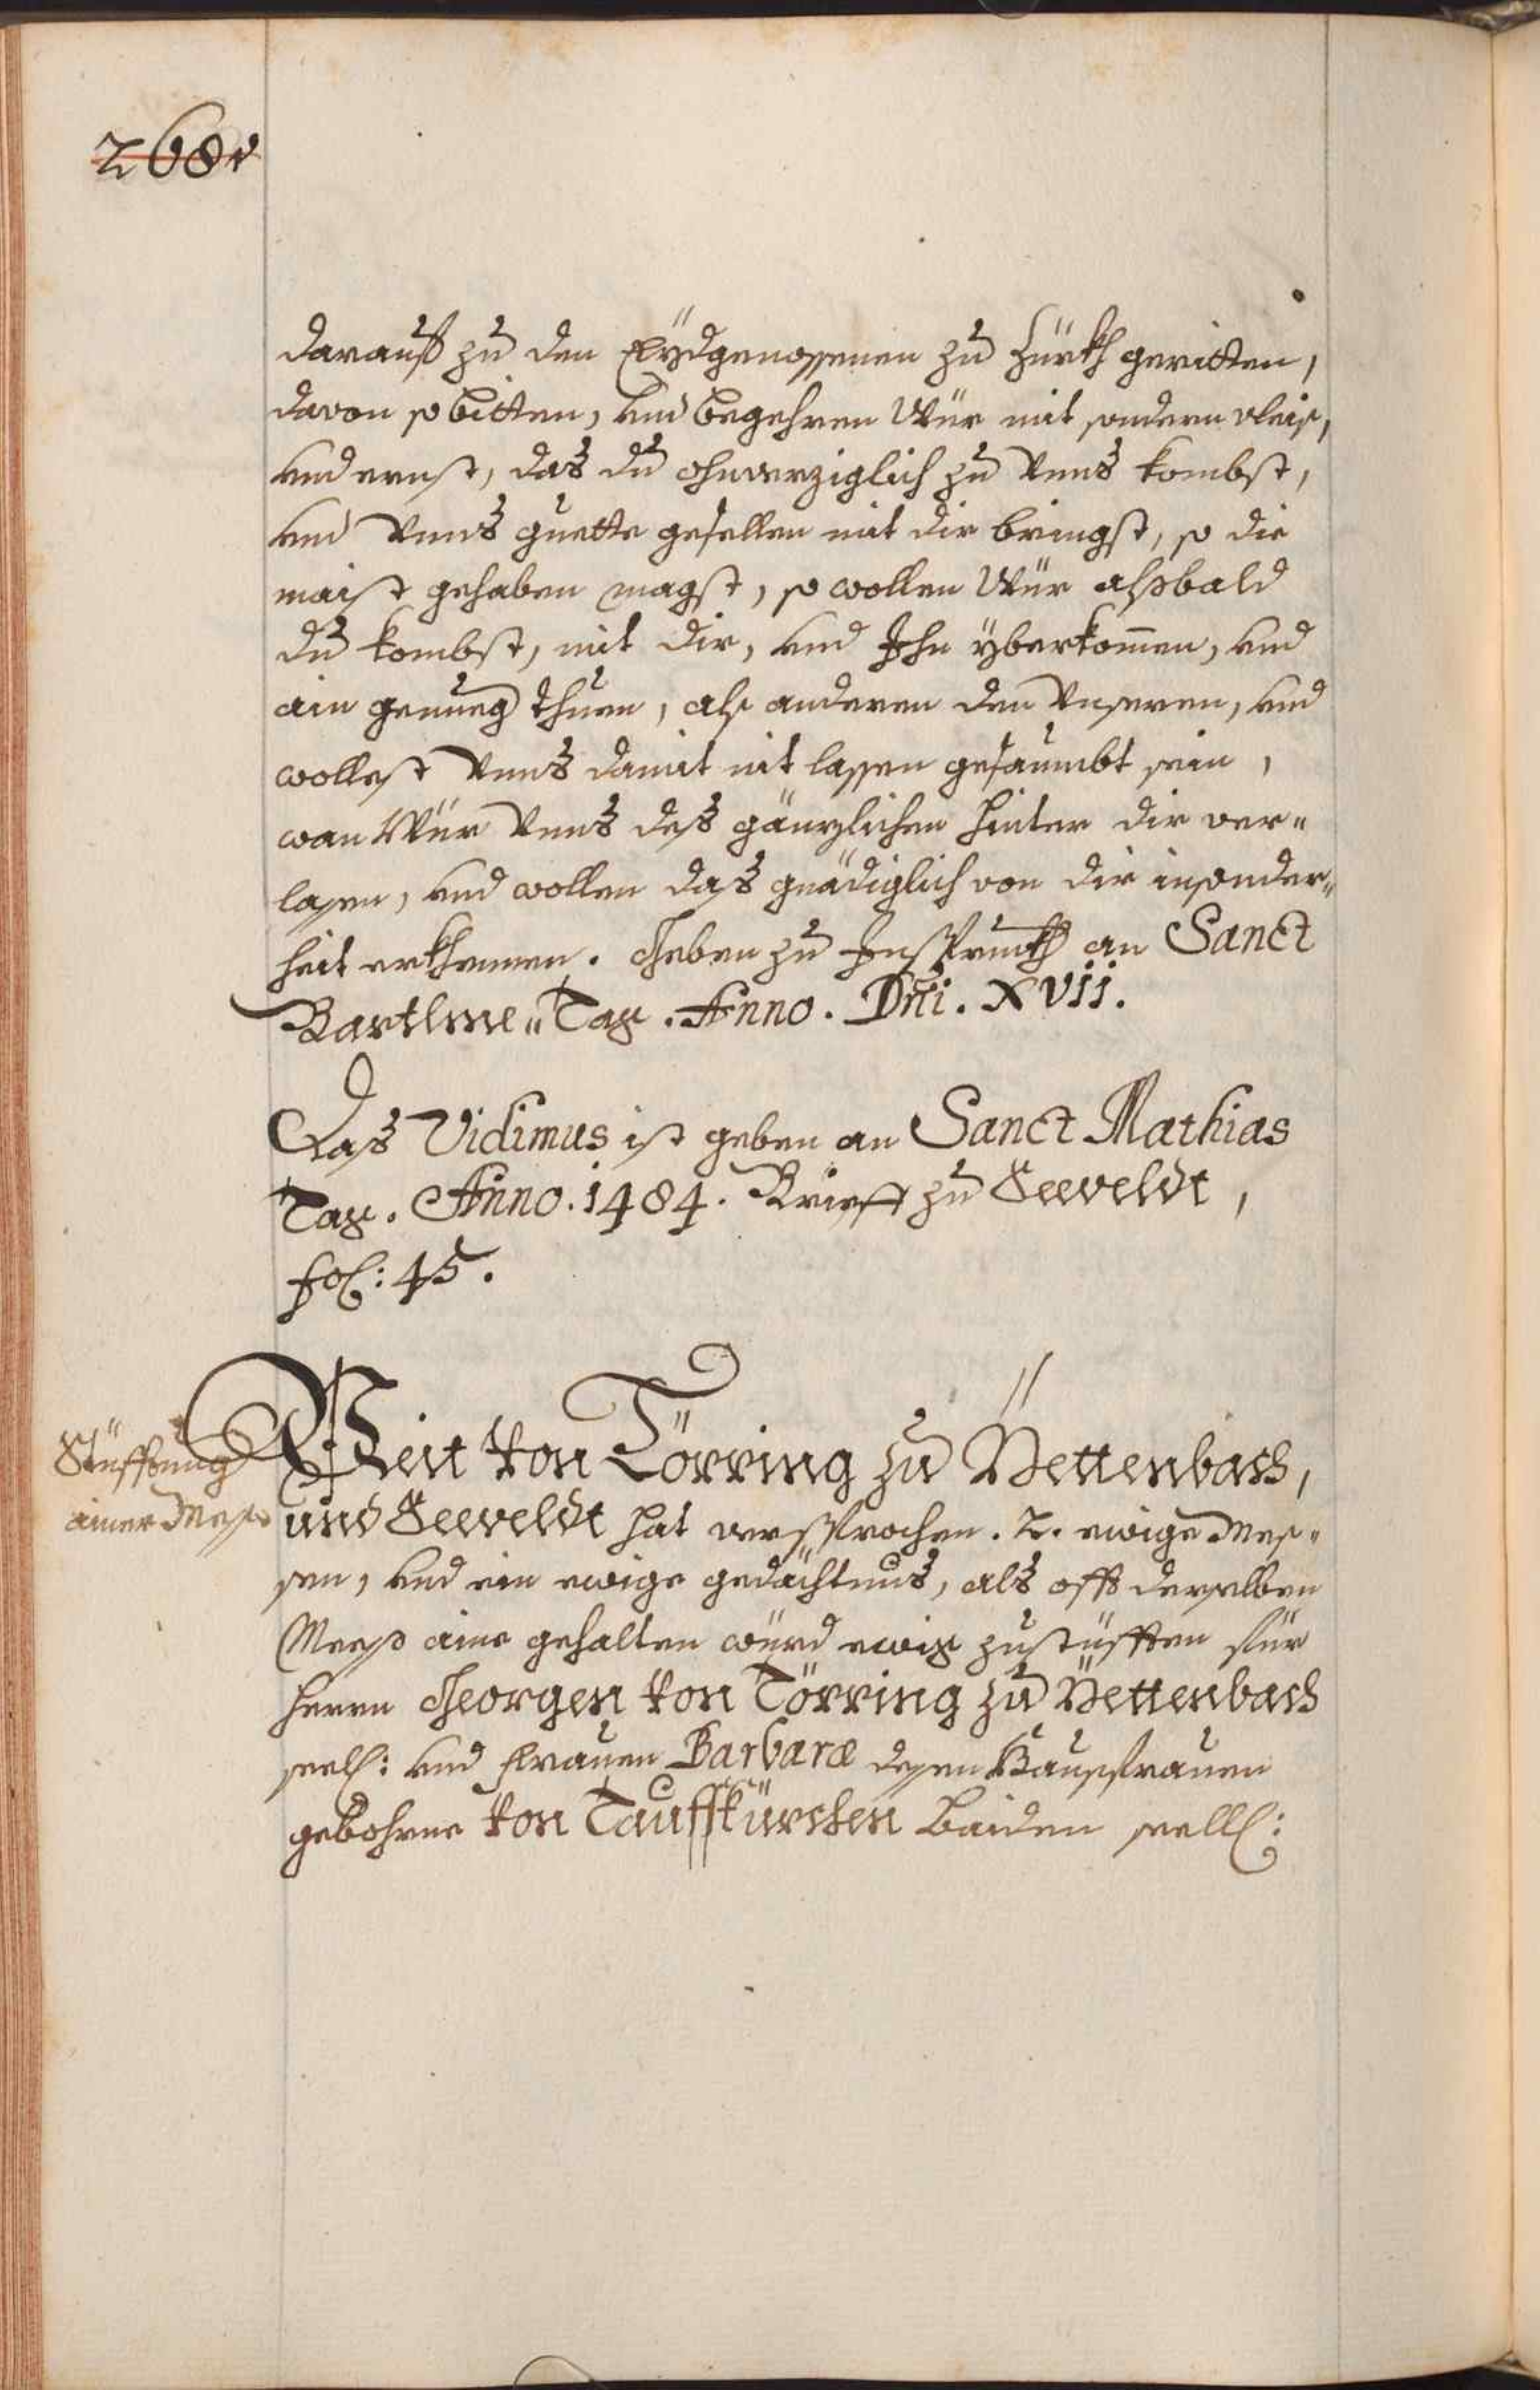 268v
darauß zu den Eÿdgenossenen zu Zürkh geritten,
davon so bitten, und begehren Wür mit sondern vleis,
und ernst, das du ohnverziglich zu Vnns kombst,
und Vnns guette gesellen mit dir bringst, so die
maist gehaben magst, so wollen Wür alßbald
du kombst, mit dir, und Ihn ÿberkom̄en, und
ain genueg thuen, als anderen den Vnseren, und
wollest Vnns damit nit lassen gesaumbt sein,
wan Wür Vnns deß gänzlichen hinter dir ver„
lasen, und wollen daß gnädiglich von dir insonder„
heit erkhennen. Geben zu Insprukh an Sanct
Bartlme„ Tag. Anno. Dn̄i. XVII.
Das Vidimus ist geben an Sanct Mathias
Tag. Anno. 1484. Brieff zu Seeveldt,
fol: 45.
Stüfftung
ainer Meß
Veit von Törring zu Pettenbach,
und Seeveldt hat versprochen. 2. ewige Mes„
sen, und ein ewige gedächtnus, als offt derselben
Mess aine gehalten würd ewig zustüfften für
Herrn Georgen von Törring zu Pettenbach
seel: und Frauen Barbaræ desen Hausfrauen
gebohrne von Tauffkürchen baiden seell: